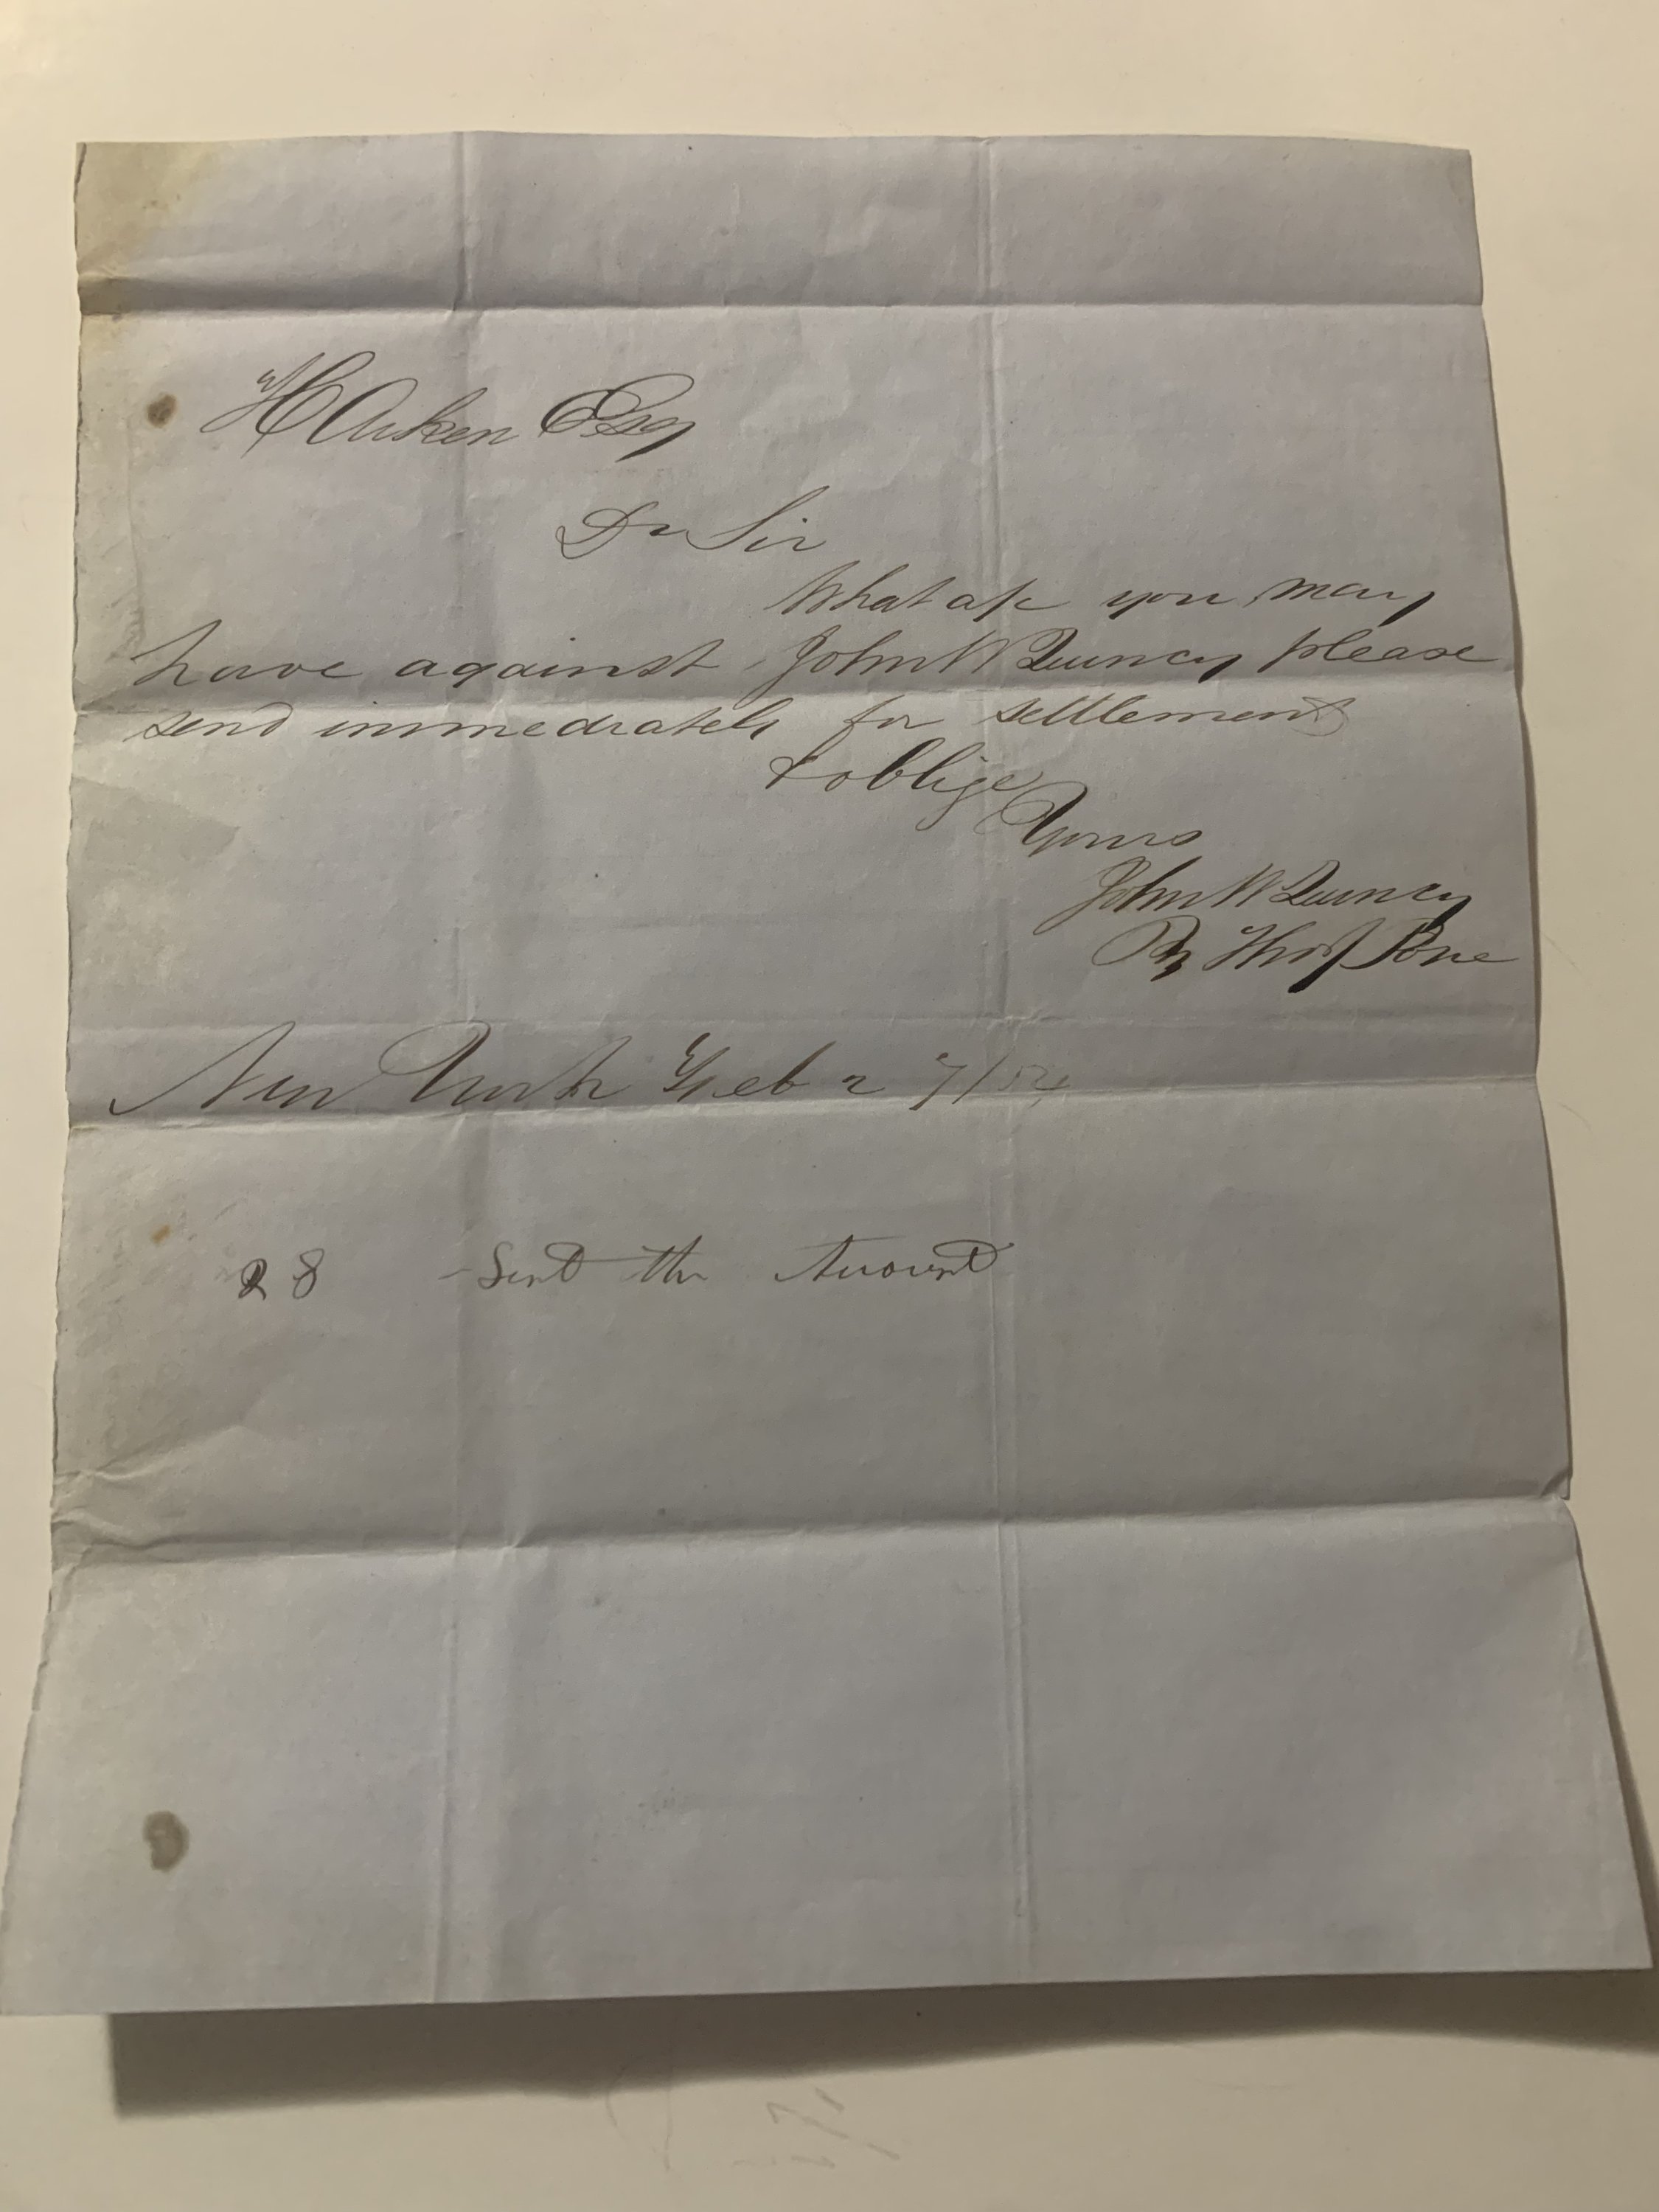 H Aiken Esq
Dr Sir
What a/c you may
have against John W Quincy please
send immediately for settlement
& oblige
Yours
John W Quincy
Pr Thos Pone
New York Feb 27/54
28 - Sent the Account